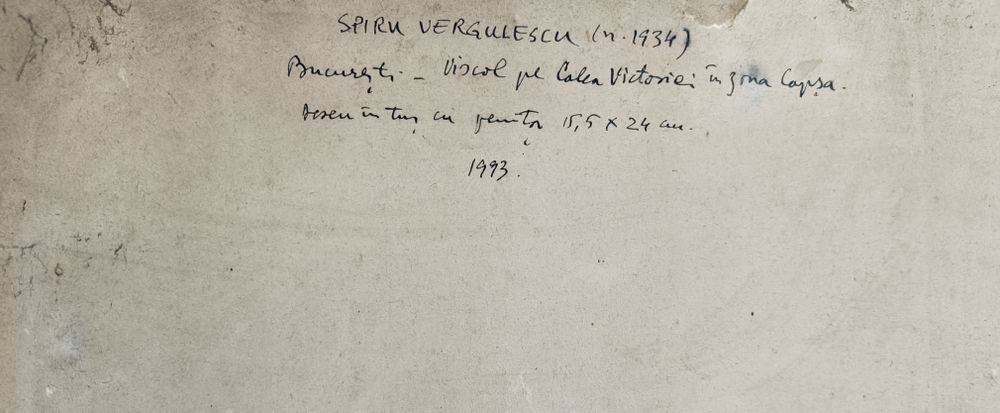 SPIRU VERGULESCU (n. 1934)
București. - Viscol pe Calea Victoriei în zona Capșa.
desen în tuș cu peniță 15,5 x 24 cm.
1993.